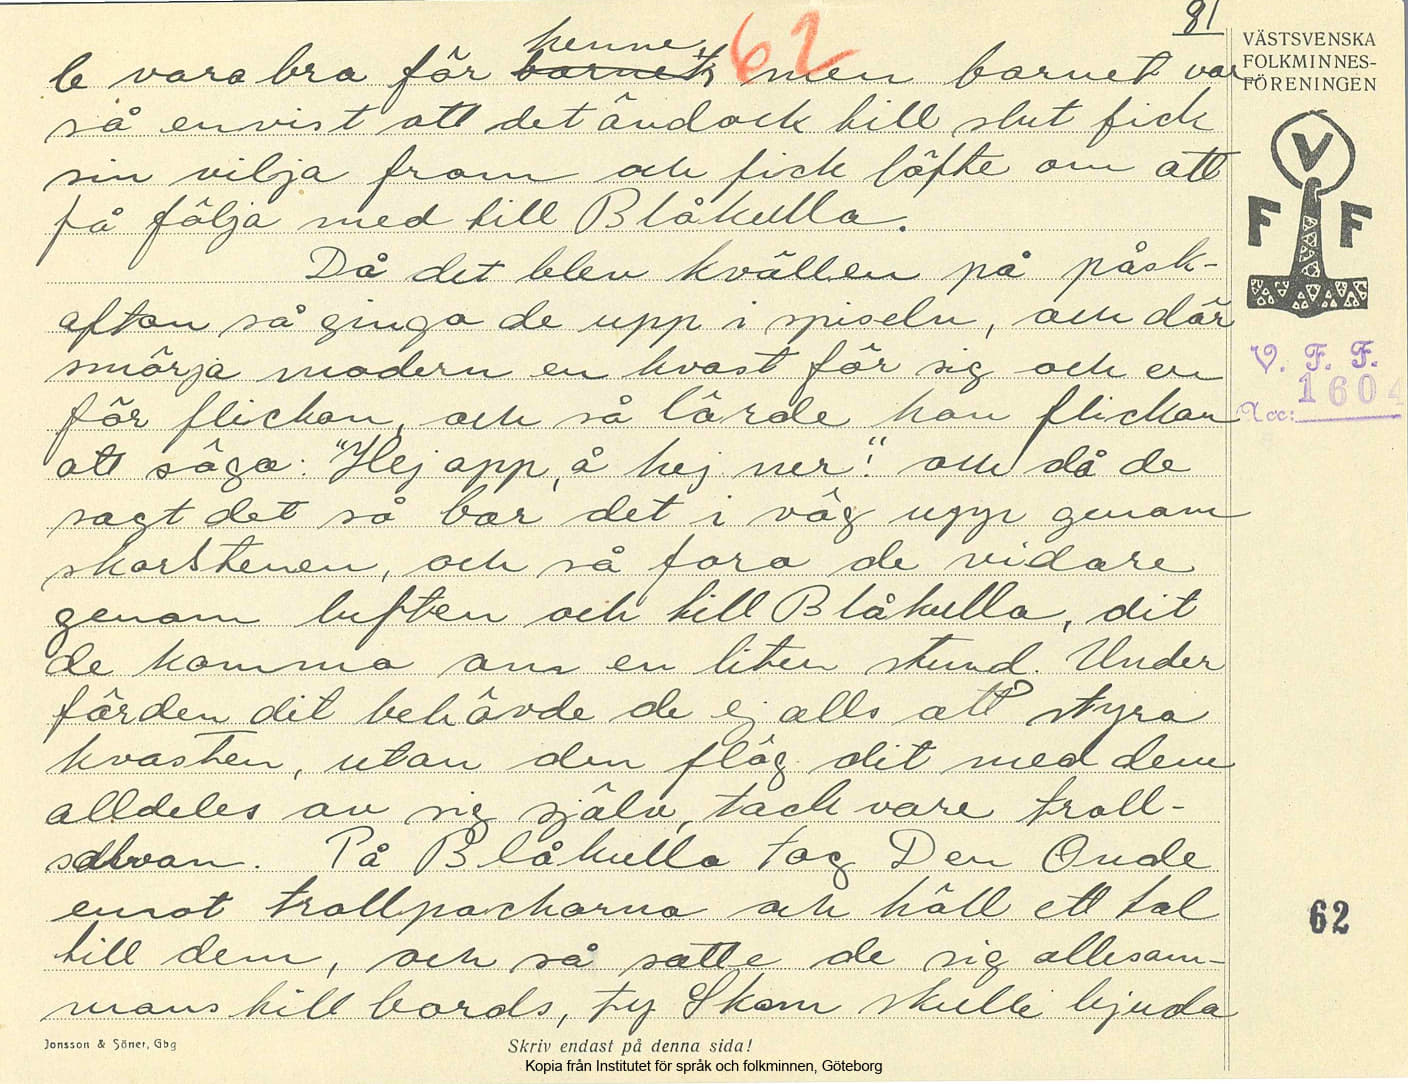 81
62
VÄSTSVENSKA
FOLKMINNES-
FÖRENINGEN
V
F F
V. F. F.
1604
Acc:
62
henne,
le vara bra för barnet, men barnet var
så envist att det ändock till slut fick
sin vilja fram och fick löfte om att
få följa med till Blåkulla.
Då det blev kvällen på påsk-
afton så gingo de upp i spiseln, och där
smörja modern en kvast för sig och en
för flickan, och så lärde hon flickan
att säga: "Hej opp, å hej ner!" och då de
sagt det så bar det i väg upp genom
skorstenen, och så foro de vidare
genom luften och till Blåkulla, dit
de kommo om en liten stund. Under
färden dit behövde de ej alls att styra
kvasten, utan den flög dit med dem
alldeles av sig själv, tack vare troll-
salvan. På Blåkulla tog Den Onde
emot trollpackorna och höll ett tal
till dem, och så satte de sig allesam-
mans till bords, ty Skam skulle bjuda
Jonsson & Söner, Gbg
Skriv endast på denna sida!
Kopia från Institutet för språk och folkminnen, Göteborg